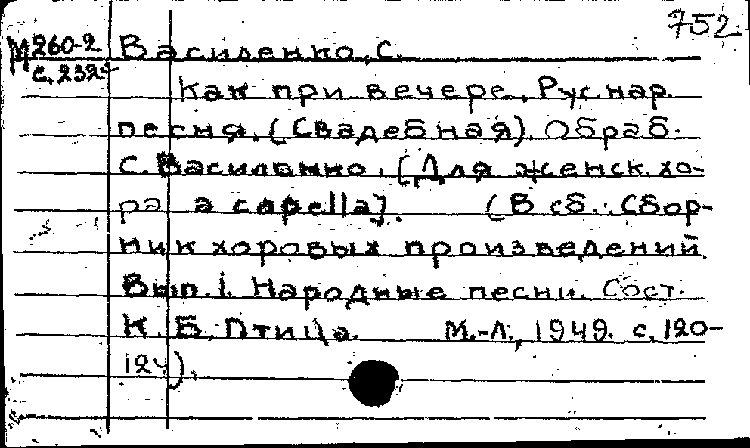 752
М260-2 Василенко, С.
с. 232
Как при вечере. Рус. нар.
песня. (Свадебная). Обраб.
С. Василенко. [Для женск. хо-
ра a capella]. (В сб.: Сбор-
ник хоровых произведений
Вып. 1. Народные песни. Сост.
К. Б. Птица. М.-Л., 1949. с. 120-
124).